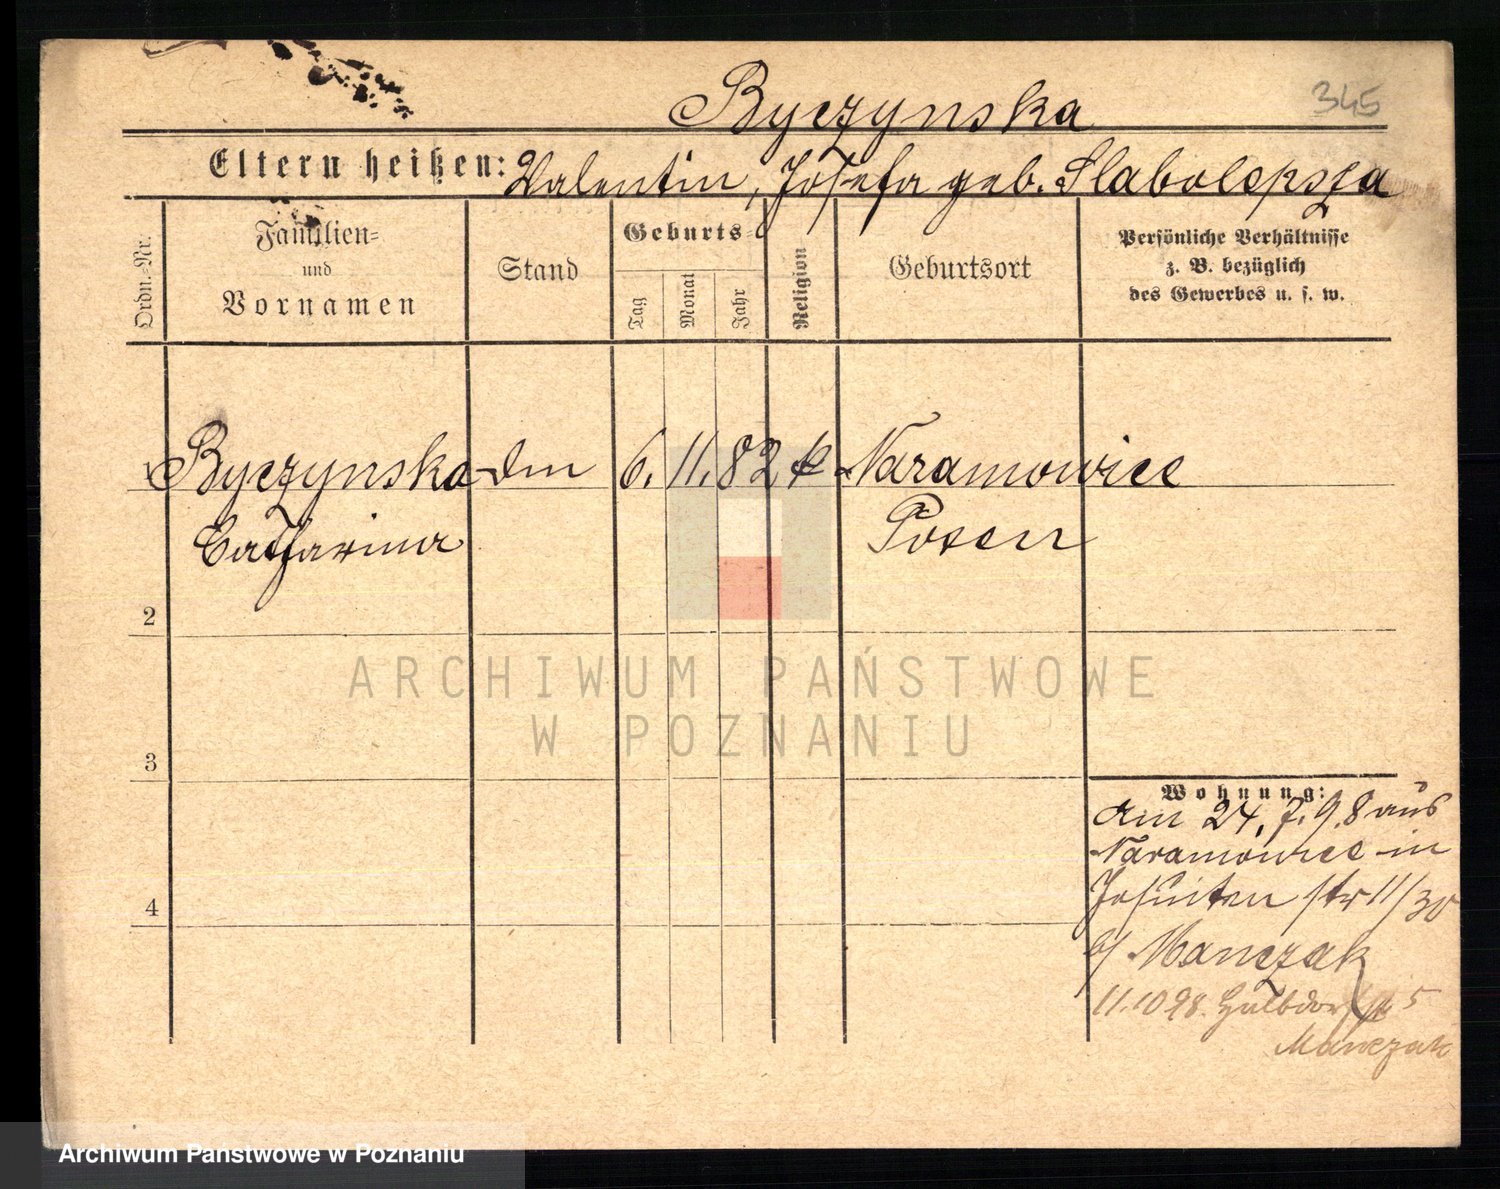 345
Byczynska
Eltern heißen: Valentin, Josefa geb. Slabolepsza
Ordn.-Nr.
Familien- und Vornamen
Stand
Geburts-
Tag
Monat
Jahr
Religion
Geburtsort
Persönliche Verhältnisse
z. B. bezüglich
des Gewerbes u. s. w.
1 Byczynska 6. 11. 82 k Naramowice
Catharina Posen
2
3
4
ARCHIWUM PAŃSTWOWE
W POZNANIU
Wohnung:
am 24. 7. 98 aus
Naramowice in
Jesuiten str 11/30
b/ Manczak
11.10 98. Halbdorfstr 5
Manczak
Archiwum Państwowe w Poznaniu